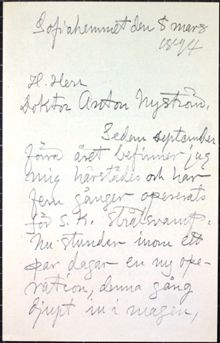 Sofiahemmet den 5 mars
1894
H. Herr
Doktor Anton Nyström,
Sedan september
förra året befinner jag
mig härstädes och har
fem gånger opererats
för S. K. strålsvamp.
Nu stundar inom ett
par dagar en ny ope-
ration, denna gång
djupt in i magen,